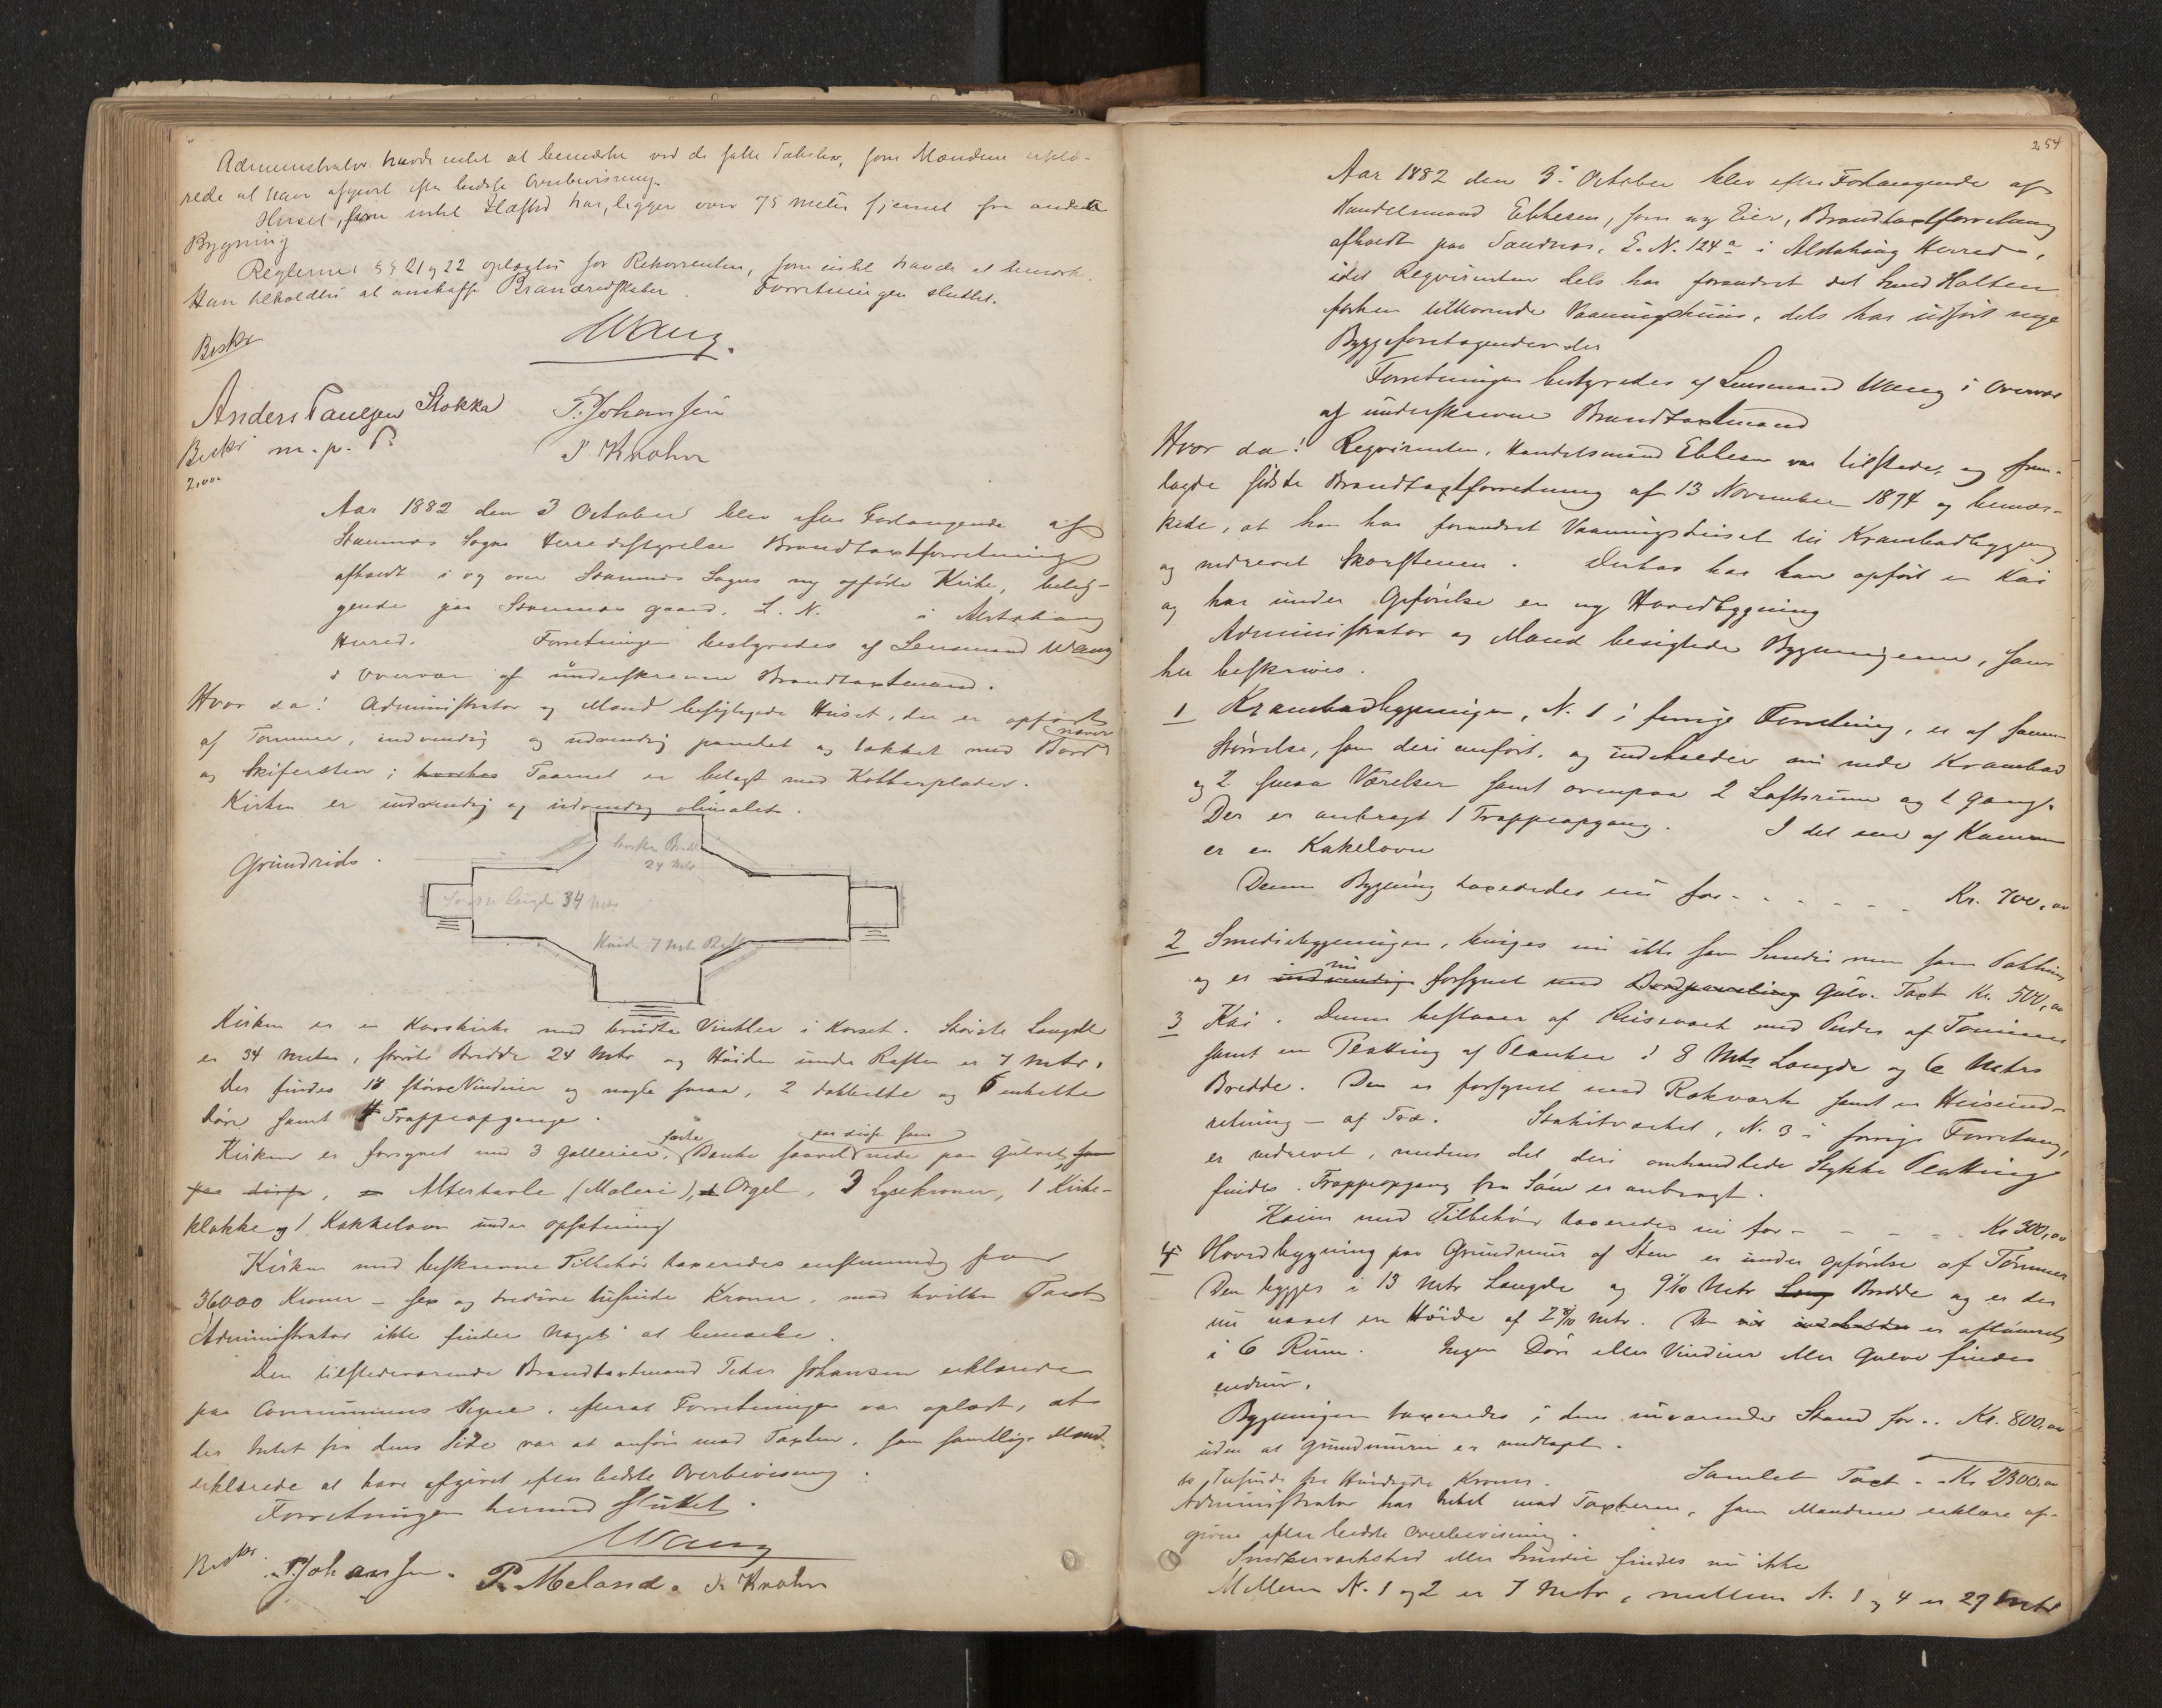 Administrator havde intet at bemærke ved de satte Takster, som Mændene erklæ-
rede at have afgivet efter bedste Overbevisning.
Huset, som intet Ildsted har, ligger over 75 meter fjernet fra andre
Bygning
Reglernes §§ 21 og 22 oplæstes for Rekvirenten, som intet havde at bemærke.
Han tilholdtes at anskaffe Brandredskaber. Forretningen sluttet.
Beskr
Wang.
Anders Paulsen Stokka P. Johansen
Beskr m. p. P. J Krohn
2,00.
Aar 1882 den 3 October blev efter Forlangende af
Stamnes Sogns Herredsstyrelse Brandtaxtforretning
afholdt i og over Stamnes Sogns ny opførte Kirke, belig-
gende paa Stamnes gaard, L. N. i Alstahaug
Herred. Forretningen bestyredes af Lensmand Wang
i Overvær af underskrevne Brandtaxtmænd.
Hvor da! Administrator og Mænd besigtigede Huset, der er opført
af Tømmer, indvendig og udvendig panelet og tækket med Bord næver
og Skifersten; Taarnet er belagt med Kobberplader.
Kirken er indvendig og udvendig oliemalet.
Grundrids.
største Bredde
24 Mtr
største Længde 34 Mtr
Høide 7 Mtr Raft
Kirken er en Korskirke med brudte Vinkler i Korset. Største Længde
er 34 meter, største Bredde 24 Mtr og Høiden under Raften er 7 Mtr.
Der findes 18 større Vinduer og nogle smaa, 2 dobbelte og 6 enkelte
Døre samt 4 Trappeopgange.
Kirken er forsynet med 3 Gallerier, faste Bænke saavel nede paa Gulvet som
paa disse, Altertavle (Maleri), Orgel, 3 Lysekroner, 1 Kirke-
klokke og 1 Kakkelovn under opsætning
Kirken med beskrevne Tilbehør taxeredes enstemmig for
36000 Kroner – sex og tredive tusinde Kroner, mod hvilken Taxt
Administrator ikke finder Noget at bemærke.
Den tilstedeværende Brandtaxtmand Peder Johansen erklærede
paa Communens Vegne, efterat Forretningen var oplæst, at
der Intet fra dens Side var at anføre mod Taxten, som samtlige Mænd
erklærede at have afgivet efter bedste Overbevisning.
Forretningen hermed sluttet.
Wang
Beskr. P. Johansen. P. Meland. J. Krohn
254
Aar 1882 den 3. October blev efter Forlangende af
Handelsmand Ebbesen, som ny Eier, Brandtaxtforretning
afholdt paa Sandnes, L. N. 124 a i Alstahaug Herred,
idet Reqvirenten dels har forandret det Knud Holten
forhen tilhørende Vaaningshuus, dels har udført nye
Byggeforetagender der
Forretningen bestyredes af Lensmand Wang i Overvær
af underskrevne Brandtaxtmænd
Hvor da! Reqvirenten, Handelsmand Ebbesen var tilstede, og frem-
lagde sidste Brandtaxtforretning af 13 November 1874 og bemær-
kede, at han har forandret Vaaningshuset til Krambodbygning
og nedrevet Skorstenen. Derhos har han opført en Kai
og har under Opførelse en ny Hovedbygning
Administrator og Mænd besigtede Bygningerne, som
her beskrives.
1 Krambodbygningen, N. 1 i forrige Forretning, er af samme
Størrelse, som deri anført, og indeholder nu nede Krambod
og 2 smaa Værelser samt ovenpaa 2 Loftsrum og 1 Gang.
Der er anbragt 1 Trappeopgang. I det ene af Kamrene
er en Kakelovn
Denne Bygning taxeredes nu for - - - - - - Kr. 700,00
2 Smediebygningen, bruges nu ikke som Smedie men som Pakhus
og er indvendig nu forsynet med Bordpaneling Gulv. Taxt Kr. 500,00
3 Kai. Denne bestaaer af Reisværk med Under af Tømmer
samt en Platting af Planker i 8 Mtrs Længde og 6 Metrs
Bredde. Den er forsynet med Rækværk samt en Heiseind-
retning – af Træ. Stakitværket, N. 3 i forrige Forretning,
er nedrevet, medens det deri omhandlede Stykke Platting
findes. Trappeopgang fra Søen er anbragt.
Kaien med Tilbehør taxeredes nu for - - - - Kr 300,00
4 Hovedbygning paa Grundmur af Sten er under Opførelse af Tømmer
Den bygges i 13 Mtr Længde og 9 4/10 Metr Bredde og er der
nu naaet en Høide af 2 8/10 Mtr. Den er aftømret
i 6 Rum. Ingen Dør eller Vinduer eller Gulve findes
endnu.
Bygningen taxeredes i dens nuværende Stand for .. Kr. 800,00
uden at Grundmuren er medtagt.
to Tusinde tre Hundrede Kroner. Samlet Taxt - Kr 2300,00
Administrator har Intet mod Taxterne, som Mændene erklære af-
givne efter bedste Overbevisning.
Snedkerværksted eller Smedie findes nu ikke
Mellem N. 1 og 2 er 7 Metr, mellem N. 1 og 4 er 29 Mtr